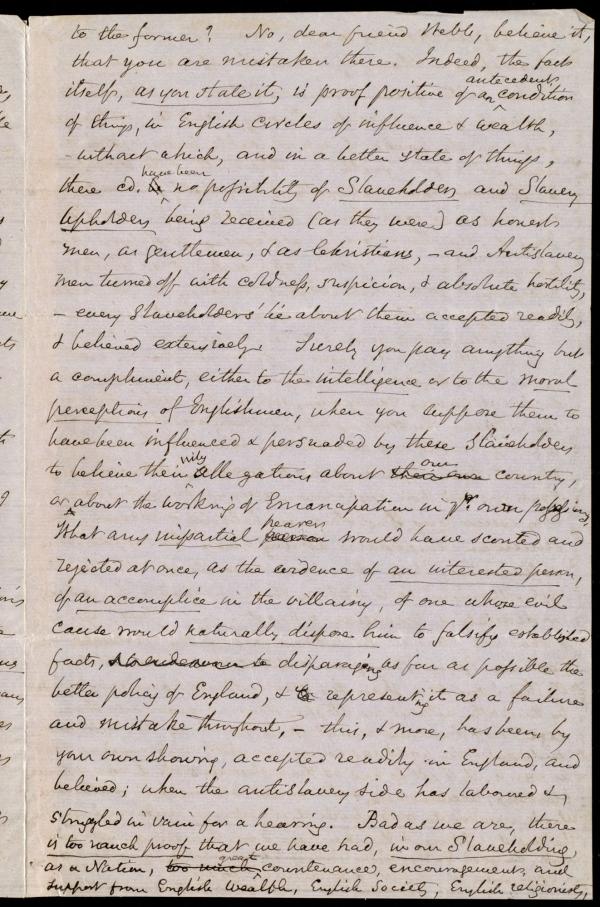 to the former? No, dear friend Webb, believe it,
that you are mistaken there. Indeed, the fact
itself, as you state it, is proof positive of an antecedent condition
of things, in English circles of influence & wealth,
- without which, and in a better state of things,
there cd. have been no possibility of Slaveholders and Slavery
Upholders being received (as they were) as honest
men, as gentlemen, & as Christians, - and Antislavery
men turned off with coldness, suspicion, & absolute hostility,
- every Slaveholders' lie about them accepted readily,
& believed extensively. Surely you pay anything but
a compliment, either to the intelligence or to the moral
perceptions of Englishmen, when you suppose them to
have been influenced & persuaded by these Slaveholders
to believe their wily allegations about their own our country,
or about the working of Emancipation in yr. own possessions.
What any impartial person hearer would have scouted and
rejected at once, as the evidence of an interested person,
of an accomplice in the villainy, of one whose evil
cause would naturally dispose him to falsify established
facts, & to endeavour to disparaging as far as possible the
better policy of England, & to representing it as a failure
and mistake throughout, - this, & more, has been, by
your own showing, accepted readily in England, and
believed; when the antislavery side has laboured &
struggled in vain for a hearing. Bad as we are, there
is too much proof that we have had, in our Slaveholding,
as a Nation, too much great countenance, encouragement, and
support from English wealth, English Society, English religionists,